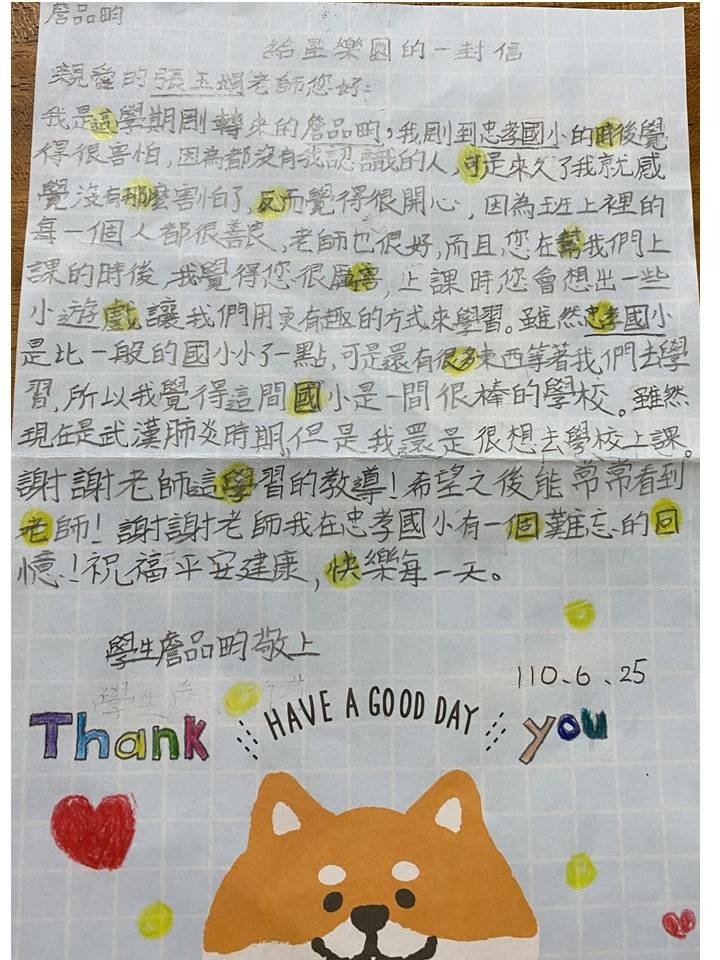 詹品畇
給星樂園的一封信
親愛的張玉嫺老師您好:
我是這學期剛轉來的詹品畇,我剛到忠孝國小的時後覺
得很害怕,因為都沒有我認識的人,可是來久了我就感
覺沒有那麼害怕了,反而覺得很開心,因為班上裡的
每一個人都很善良,老師也很好,而且您在幫我們上
課的時後,我覺得您很厲害,上課時您會想出一些
小遊戲讓我們用更有趣的方式來學習。雖然忠孝國小
是比一般的國小小了一點,可是還有很多東西等著我們去學
習,所以我覺得這間國小是一間很棒的學校。雖然
現在是武漢肺炎時期,但是我還是很想去學校上課。
謝謝老師這學習的教導!希望之後能常常看到
老師!謝謝老師我在忠孝國小有一個難忘的回
憶!祝福平安建康,快樂每一天。
學生詹品畇敬上
110.6.25
HAVE A GOOD DAY
Thank you